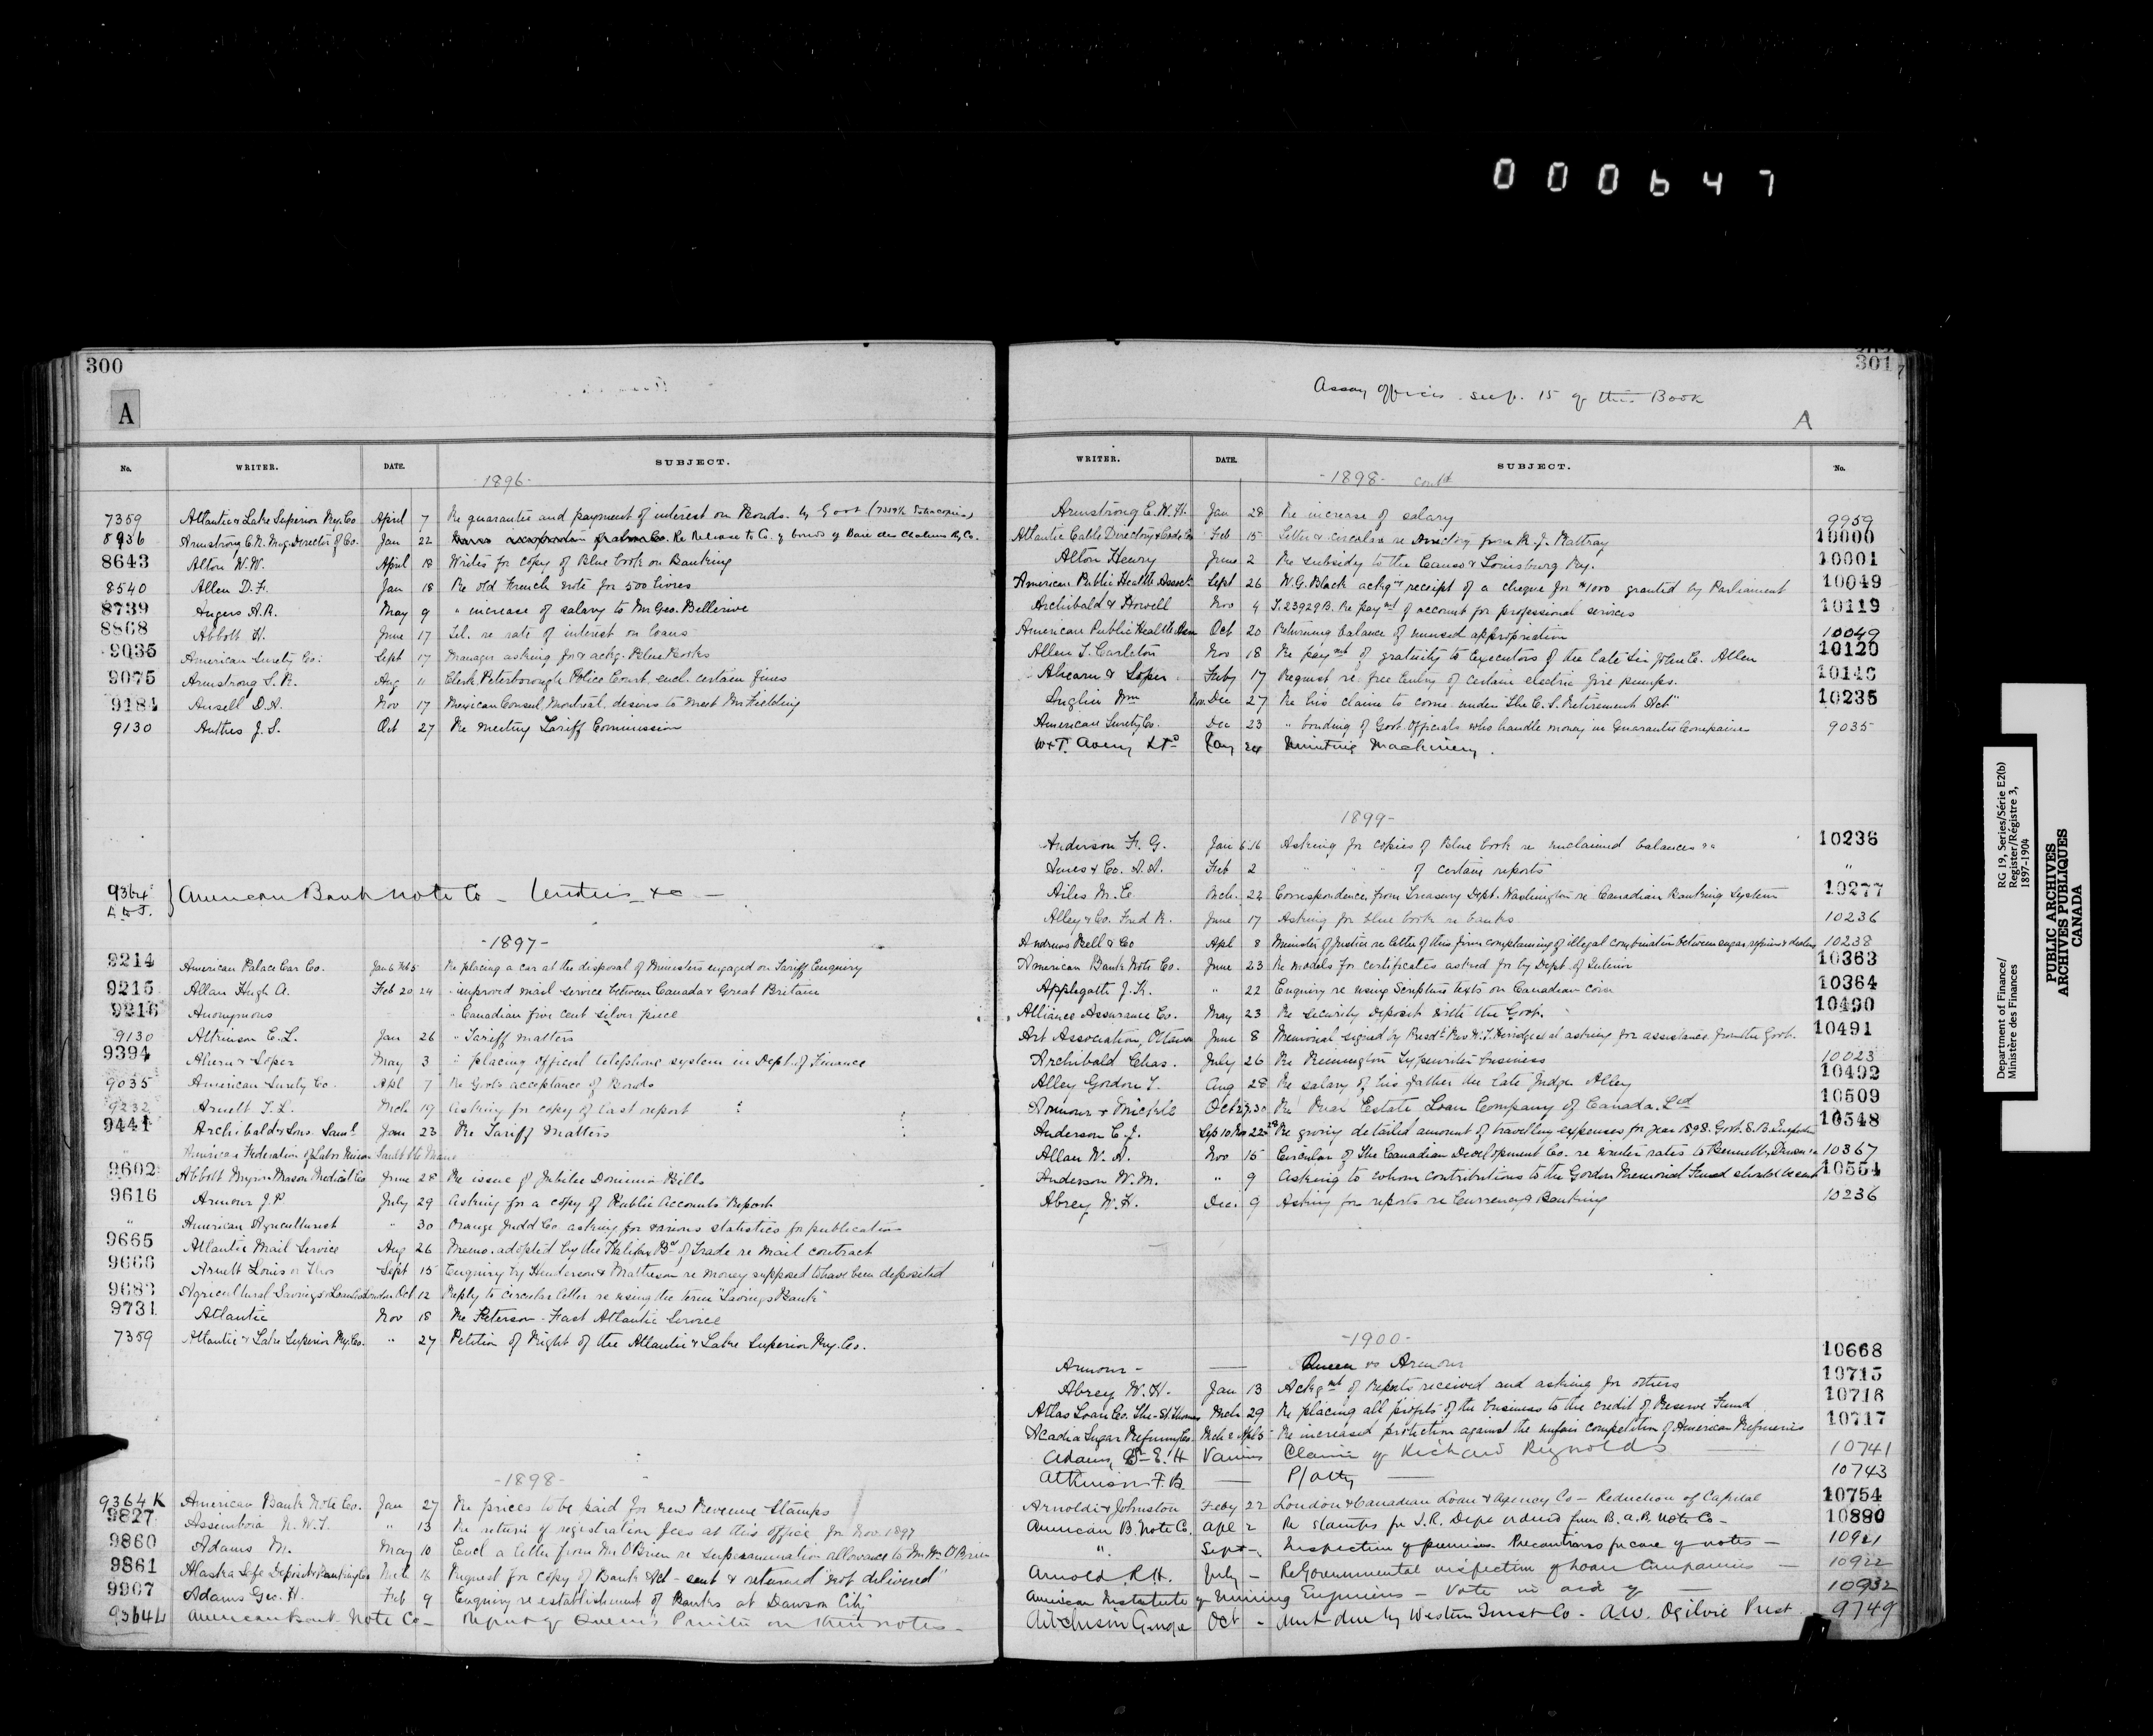 000647
300
A
No. WRITER. DATE. SUBJECT.
-1896-
7359 Atlantic & Lake Superior Ry. Co April 7 Re guarantee and payment of interest on Bonds. by Govt
8936 Armstrong C.N. Mng. Director of Co. Jan 22 Re Release to Co. of bonds of Baie des Chaleurs Ry Co.
8643 Alton W.W. April 18 Writes for copy of Blue book on Banking
8540 Allen D.F. Jan 18 Re old French note for 500 livres
8739 Angers A.R. May 9 " increase of salary to Mr Geo. Bellerive
8868 Abbott H. June 17 Tel. re rate of interest on loans
9035 American Surety Co: Sept 17 Manager asking for & ackg. Blue Books
9075 Armstrong S.R. Aug 11 Clerk Peterborough Police Court, encl. certain fines
9184 Ansell D.A. Nov 17 Mexican Consul Montreal, desires to meet Mr Fielding
9130 Anthes J.S. Oct 27 Re meeting Tariff Commission
9364 American Bank Note Co - Tenders &c -
A to J.
-1897-
9214 American Palace Car Co. Jan 6 Feb 5 Re placing a car at the disposal of Ministers engaged on Tariff Enquiry
9215 Allan Hugh A. Feb 20 24 " improved mail service between Canada & Great Britain
9216 Anonymous " Canadian five cent silver piece
9130 Atkinson E.L. Jan 26 " Tariff matters
9394 Ahern & Soper May 3 " placing official telephone system in Dept. of Finance
9035 American Surety Co. Apl 7 Re Govt's acceptance of Bonds
9232 Arnett T.L. Mch 19 Asking for copy of last report
9441 Archibald & Sons. Saml Jan 23 Re Tariff Matters
" American Federation of Labor Union Sault Ste Marie
9602 Abbott Myron Mason Medical Co June 28 Re issue of Jubilee Dominion Bills
9616 Armour J.P July 29 Asking for a copy of Public Accounts Report
" American Agriculturist " 30 Orange Judd Co asking for various statistics for publication
9665 Atlantic Mail Service Aug 26 Memo. adopted by the Halifax Bd of Trade re mail contract
9666 Arnett Louis or Thos Sept 15 Enquiry by Henderson & Matheson re money supposed to have been deposited
9683 Agricultural Savings & Loan Co London Oct 12 Reply to circular letter re using the term "Savings Bank"
9731 Atlantic Nov 18 Re Peterson - Fast Atlantic Service
7359 Atlantic & Lake Superior Ry. Co. " 27 Petition of Right of the Atlantic & Lake Superior Ry. Co.
-1898-
9364 K American Bank Note Co. Jan 27 Re prices to be paid for new Revenue Stamps
9827 Assiniboia N.W.T. " 13 Re return of registration fees at this office for Nov. 1897
9860 Adams M. May 10 Encl a letter from Mr O'Brien re superannuation allowance to Mr Wm O'Brien
9861 Alaska Safe Deposit & Banking Co Mch 16 Request for copy of Bank Act - sent & returned "not delivered"
9907 Adams Geo. H. Feb 9 Enquiry re establishment of Banks at Dawson City
9364 L American Bank Note Co - Report of Queen's Printer on their notes -
301
Assay offices. see p. 15 of this Book
A
WRITER. DATE. SUBJECT. No.
-1898- contd
Armstrong C.W.H. Jan 28 Re increase of salary 9959
Atlantic Cable Directory & Code Co Feb 15 Letter & circular re Directory from R.J. Rattray 10000
Alton Henry June 2 Re subsidy to the Canso & Louisburg Ry. 10001
American Public Health Assoct Sept 26 W.G. Black ackgs receipt of a cheque for $1000 granted by Parliament 10049
Archibald & Howell Nov 4 T.23929B. Re paymt of account for professional services 10119
American Public Health Assn Oct 20 Returning balance of unused appropriation 10049
Allen T. Carleton Nov 18 Re paymt of gratuity to executors of the late Sir John C. Allen 10120
Ahearn & Soper Feby 17 Request re free Entry of certain electric fire pumps. 10146
Anglin Wm Nov. Dec 27 Re his claim to come under "The C.S. Retirement Act" 10235
American Surety Co. Dec 23 " bonding of Govt. Officials who handle money in Guarantee Companies 9035
W & T. Avery Ltd Jany 24 Minting Machinery.
1899-
Anderson F.G. Jan 6 16 Asking for copies of Blue book re unclaimed balances 10236
Ames & Co. A.A. Feb 2 " " " of certain reports "
Ailes M.E Mch. 22 Correspondence from Treasury Dept. Washington re Canadian Banking System 10277
Alley & Co. Fred R. June 17 Asking for blue book re banks 10236
Andrews Bell & Co Apl 8 Minister of Justice re letter of this firm complaining of illegal combination between sugar refiners & dealers 10238
American Bank Note Co. June 23 Re models for certificates asked for by Dept. of Interior 10363
Applegath J.K. " 22 Enquiry re using Scripture texts on Canadian coin 10364
Alliance Assurance Co. May 23 Re security deposit with the Govt. 10490
Art Association, Ottawa June 8 Memorial signed by Presdt Rev W.T. Herridge et al asking for assistance from the Govt. 10491
Archibald Chas. July 26 Re Remington Typewriter business 10023
Alley Gordon T. Aug 28 Re salary of his father the late Judge Alley 10492
Armour & Mickle Oct 27.30 Re Real Estate Loan Company of Canada. Ltd 10509
Anderson C.J. Sep 10 Nov 22 Re giving detailed amount of travelling expenses for year 1898. Govt. S.B. Inspector 10548
Allan W.A. Nov 15 Circular of The Canadian Development Co. re winter rates to Bennett, Dawson &c 10367
Anderson W.M. " 9 Asking to whom contributions to the Gordon Memorial Fund should be sent 10554
Abrey W.H. Dec. 9 Asking for reports re Currency & Banking 10236
-1900-
Armour - Queen vs Armour 10668
Abrey W.H. Jan 13 Ackgmt of Reports received and asking for others 10715
Atlas Loan Co. The - St. Thomas Mch 29 Re placing all profits of the business to the credit of Reserve Fund 10716
Acadia Sugar Refining Co. Mch 2 Apl 5 Re increased protection against the unfair competition of American Refineries 10717
Adams, Dr E.H Various Claim of Richard Reynolds 10741
Atkinson F.B. P/Atty 10743
Arnoldi & Johnston Feby 22 London & Canadian Loan & Agency Co - Reduction of Capital 10754
American B. Note Co. Apl 2 Re Stamps for I.R. Dept ordered from B.A.B. Note Co - 10880
" Sept - Inspection of premises. Precautions for care of notes - 10921
Arnold R.H. July - Re Governmental inspection of Loan Companies - 10922
American Institute of Mining Engineers - Vote in aid of 10932
Aitchison George Oct - Amt due by Western Trust Co - A.W. Ogilvie Prest. 9749
Department of Finance/ RG 19, Series/Série E2(b)
Ministère des Finances Register/Régistre 3,
1897-1904
PUBLIC ARCHIVES
ARCHIVES PUBLIQUES
CANADA